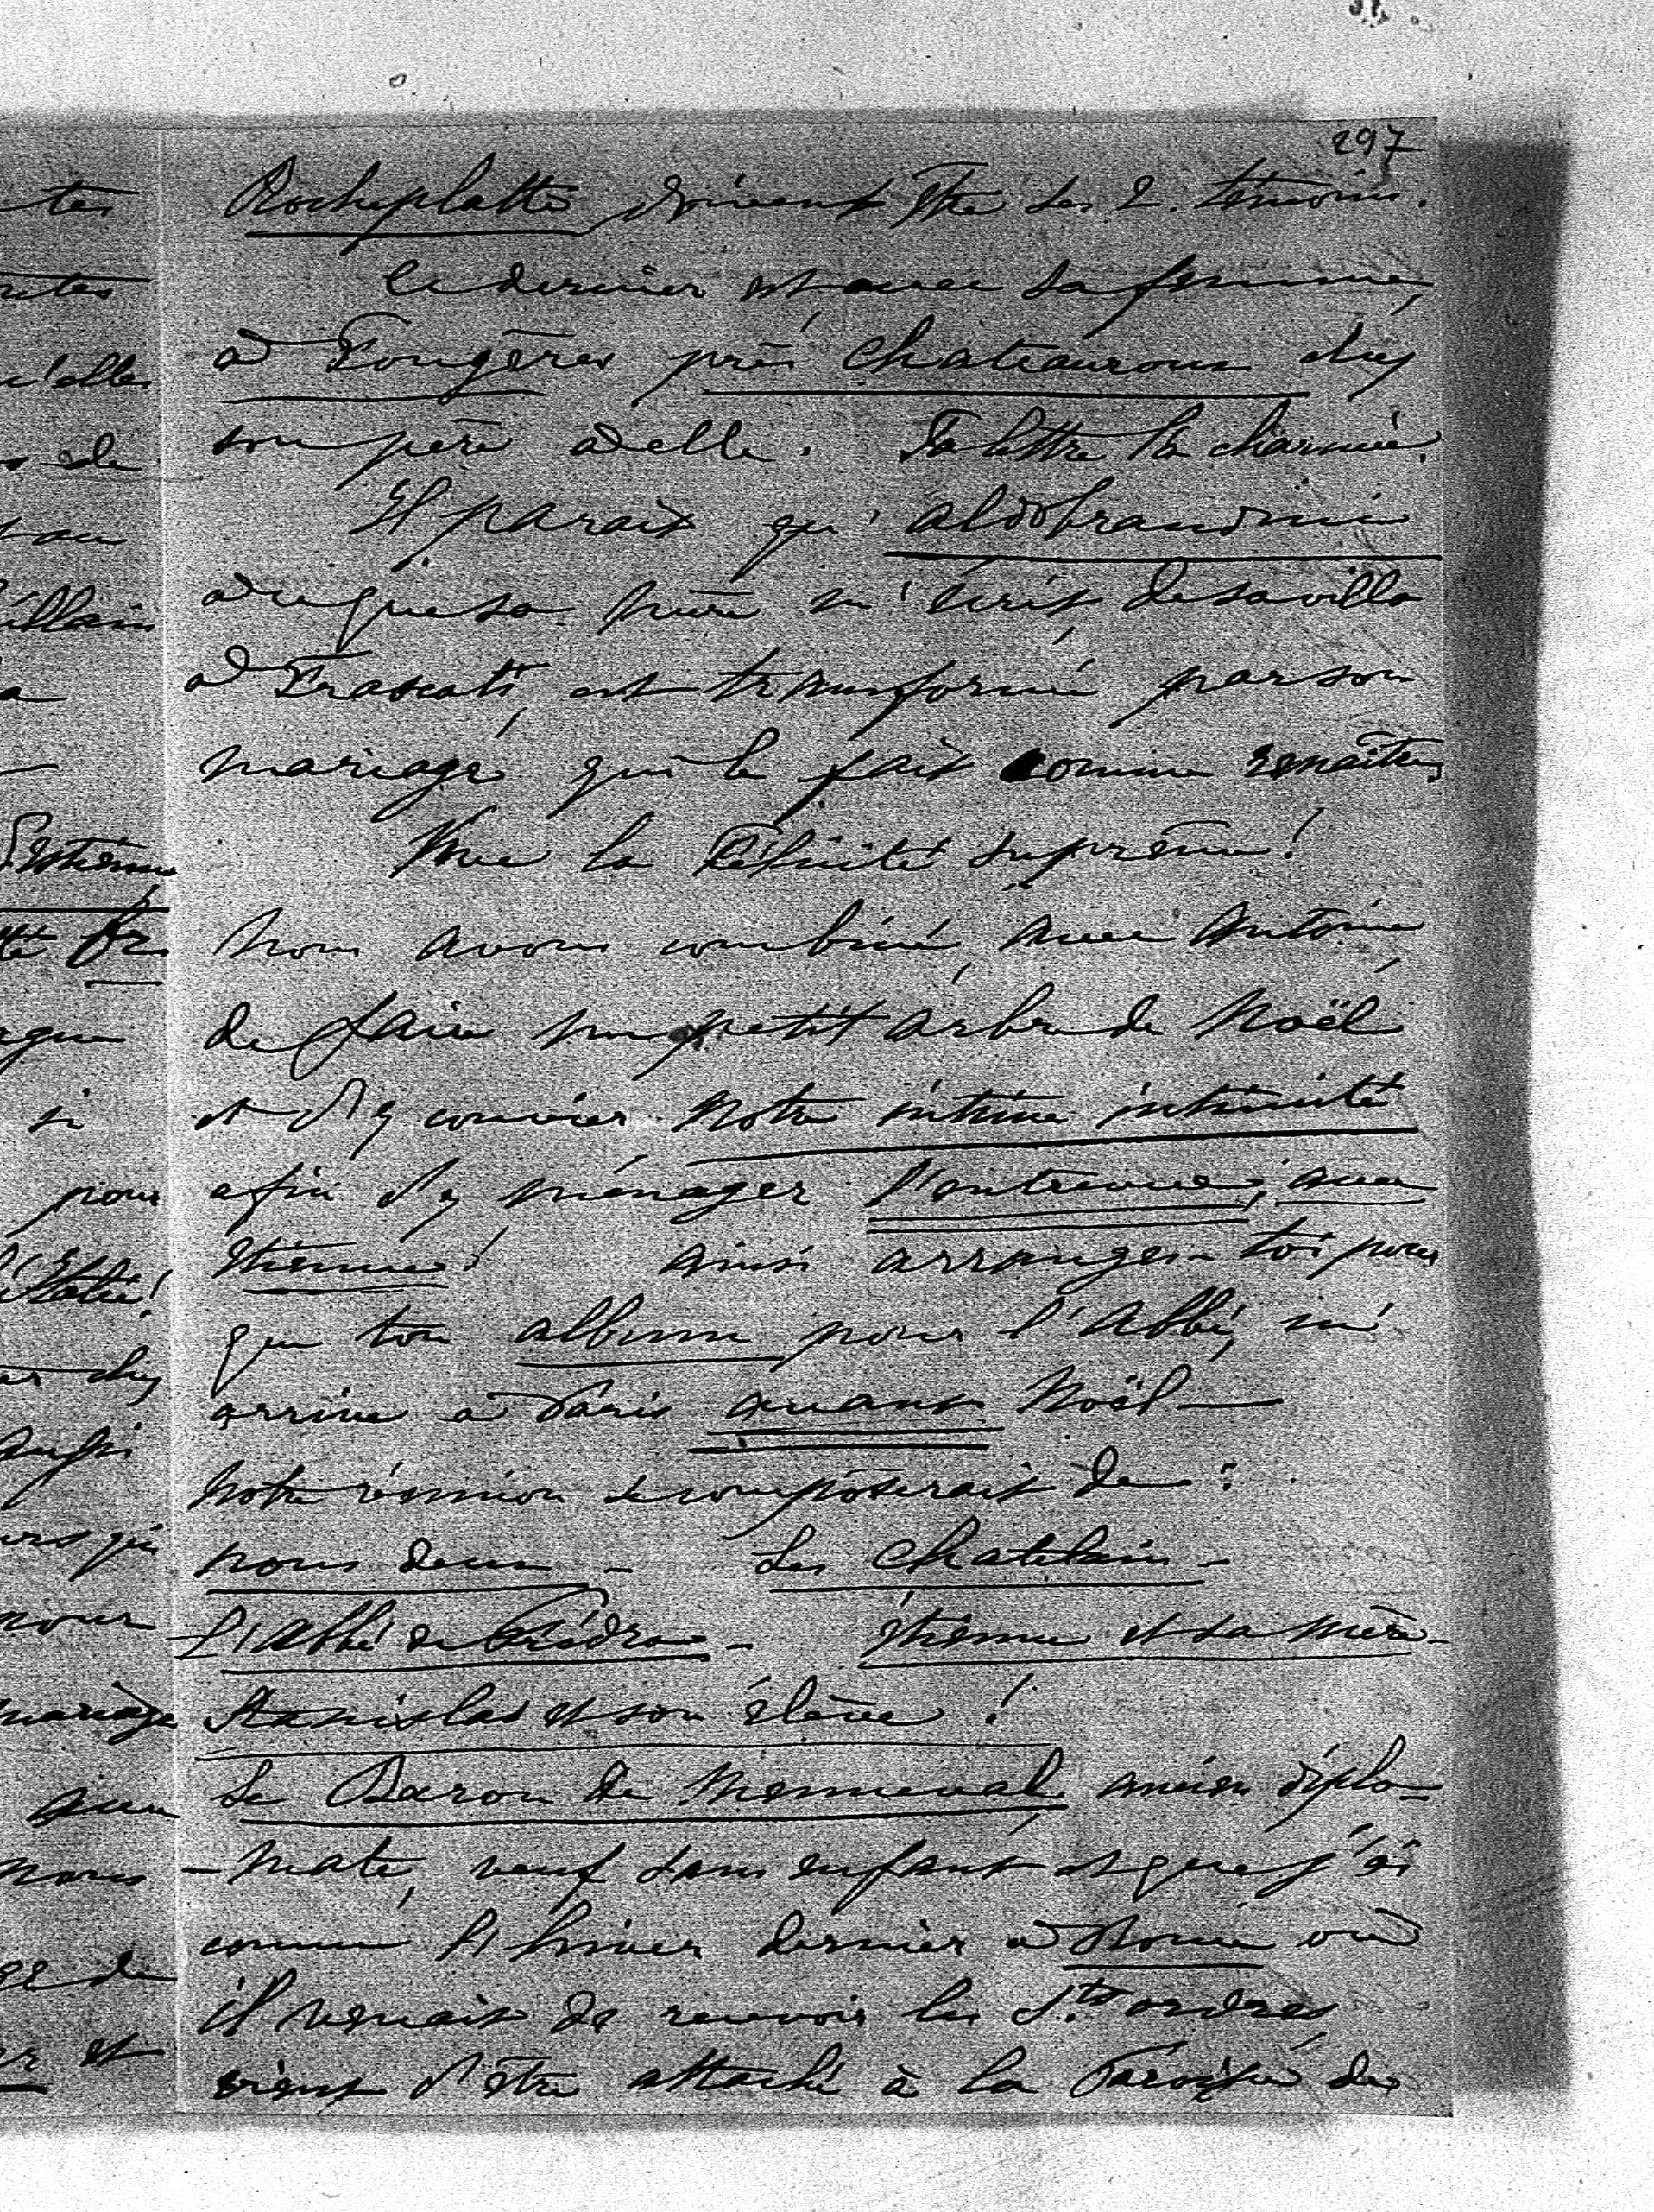 297
Rocheplatte doivent être ses 2. témoins.
Ce dernier est avec sa femme,
à Fougères près Chateauroux chez
son père à elle. Ta lettre l'a charmée.
Il parait qu'Aldobrandini
à ce que sa mère m'écrit de sa villa
à Frascati, est transformé par son
mariage, qui le fait comme renaître,
Vive la Félicité suprême!
Nous avons combiné, avec Antoine,
de faire un petit arbre de Noël
et d'y convier notre intime intimité
afin d'y ménager l'entrevue, avec
Etienne! Ainsi arranges-toi pour
que ton album pour l'Abbé, m'
arrive à Paris avant Noël —
Notre réunion se composerait de :
nous deux - Les Chatelain -
L'Abbé de - Étienne et sa mère -
Stanislas et son élève !
Le Baron de Menneval, ancien diplo-
-mate, veuf sans enfant et que j'ai
connu l'hiver dernier à Rome où
il venait de recevoir les Sts ordres
vient d'être attaché à la Paroisse des
tes
ntes
u'elles
s de
illain
a
gue
si
pour
chez
aussi
pour
mariage
avec
nous
ge de
er et